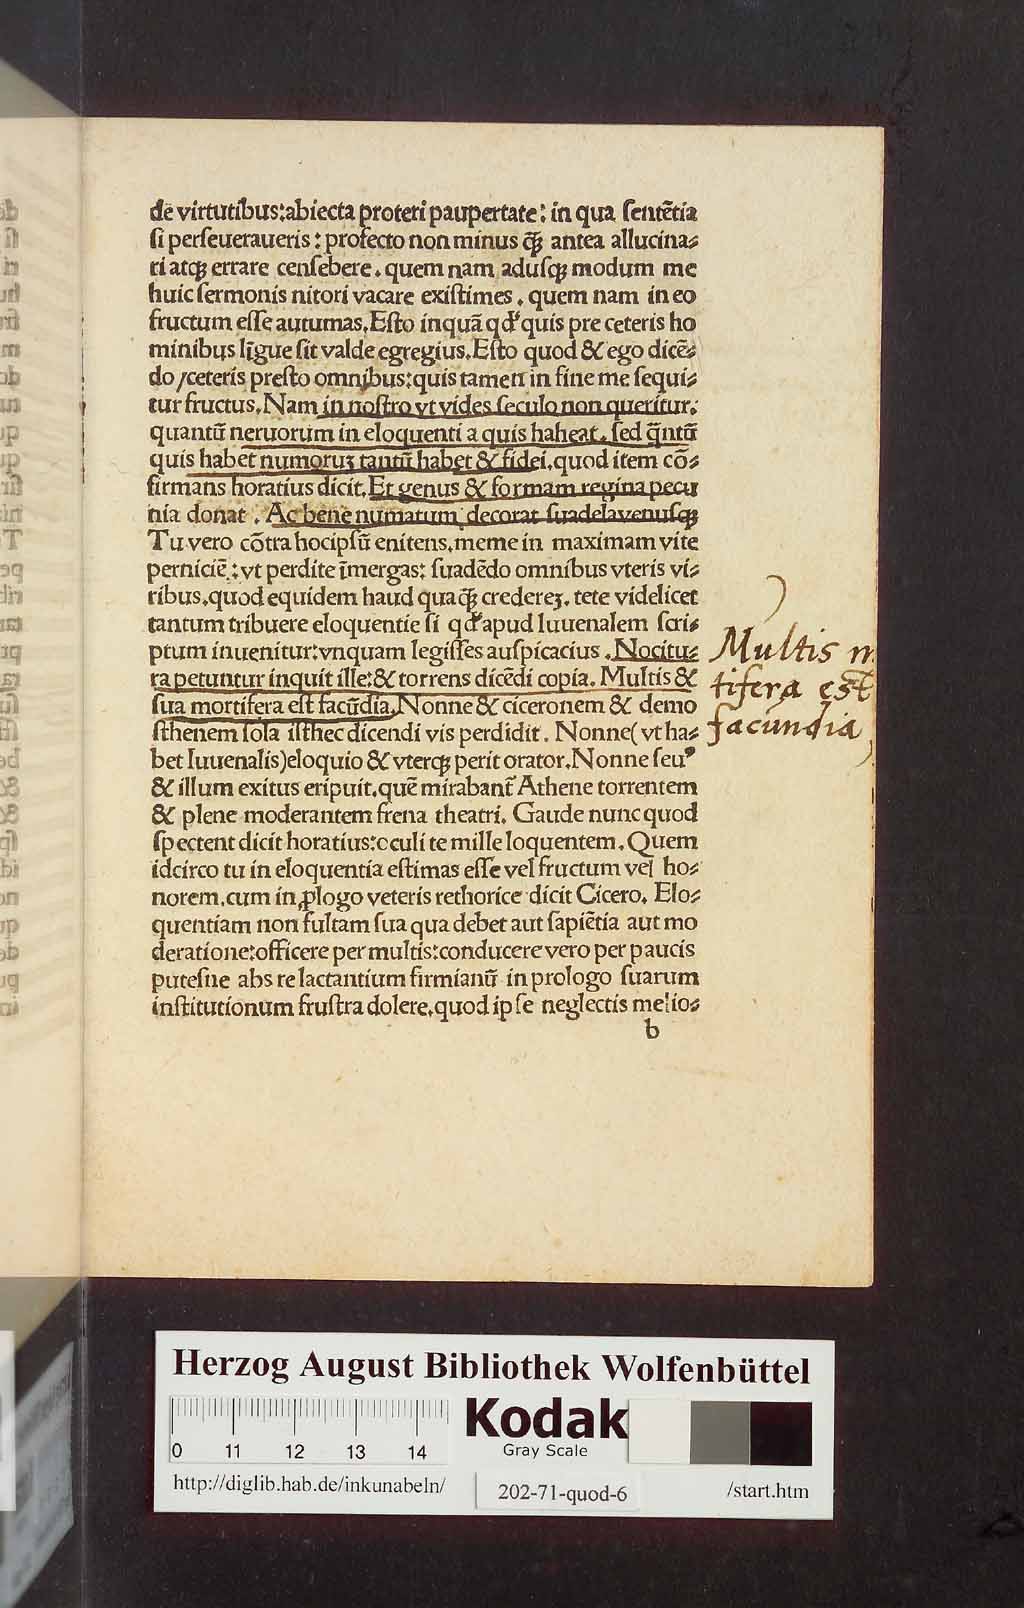 de virtutibus:abiecta proteri paupertate: in qua sentẽtia
si perseueraueris: profecto non minus q̃ꝫ antea allucina⸗
ri atqꝫ errare censebere. quem nam adusqꝫ modum me
huic sermonis nitori vacare existimes. quem nam in eo
fructum esse autumas. Esto inquã qđ quis pre ceteris ho
minibus lĩgue sit valde egregius. Esto quod & ego dicẽ⸗
do/ceteris presto omnibus:quis tamen in fine me sequi⸗
tur fructus. Nam in nostro vt vides seculo non queritur:
quantũ neruorum in eloquenti a quis haheat. sed q̃ntũ
quis habet numoruꝫ tantũ habet & fidei. quod item cõ⸗
firmans horatius dicit. Et genus & formam regina pecu
nia donat. Ac bene numatum decorat suadela venusqꝫ
Tu vero cõtra hoc ipsũ enitens. meme in maximam vite
perniciẽ: vt perdite ĩmergas: suadẽdo omnibus vteris vi⸗
ribus. quod equidem haud qua q̃ꝫ credereꝫ. tete videlicet
tantum tribuere eloquentie si qđ apud Iuuenalem scri⸗
ptum inuenitur:vnquam legisses auspicacius. Nocitu⸗
ra petuntur inquit ille:& torrens dicẽdi copia. Multis &
sua mortifera est facũdia. Nonne & ciceronem & demo
sthenem sola isthec dicendi vis perdidit. Nonne(vt ha⸗
bet Iuuenalis)eloquio & vterqꝫ perit orator. Nonne seuꝰ
& illum exitus eripuit. quẽ mirabant̃ Athene torrentem
& plene moderantem frena theatri. Gaude nunc quod
spectent dicit horatius:oculi te mille loquentem. Quem
idcirco tu in eloquentia estimas esse vel fructum vel ho⸗
norem. cum in ꝓlogo veteris rethorice dicit Cicero. Elo⸗
quentiam non fultam sua qua debet aut sapiẽtia aut mo
deratione:officere per multis:conducere vero per paucis
putesne abs re lactantium firmianũ in prologo suarum
institutionum frustra dolere. quod ipse neglectis melio⸗
b
Multis m
tifera est
facundia
Herzog August Bibliothek Wolfenbüttel
0 11 12 13 14
Kodak
Gray Scale
http://diglib.hab.de/inkunabeln/ 202-71-quod-6 /start.htm